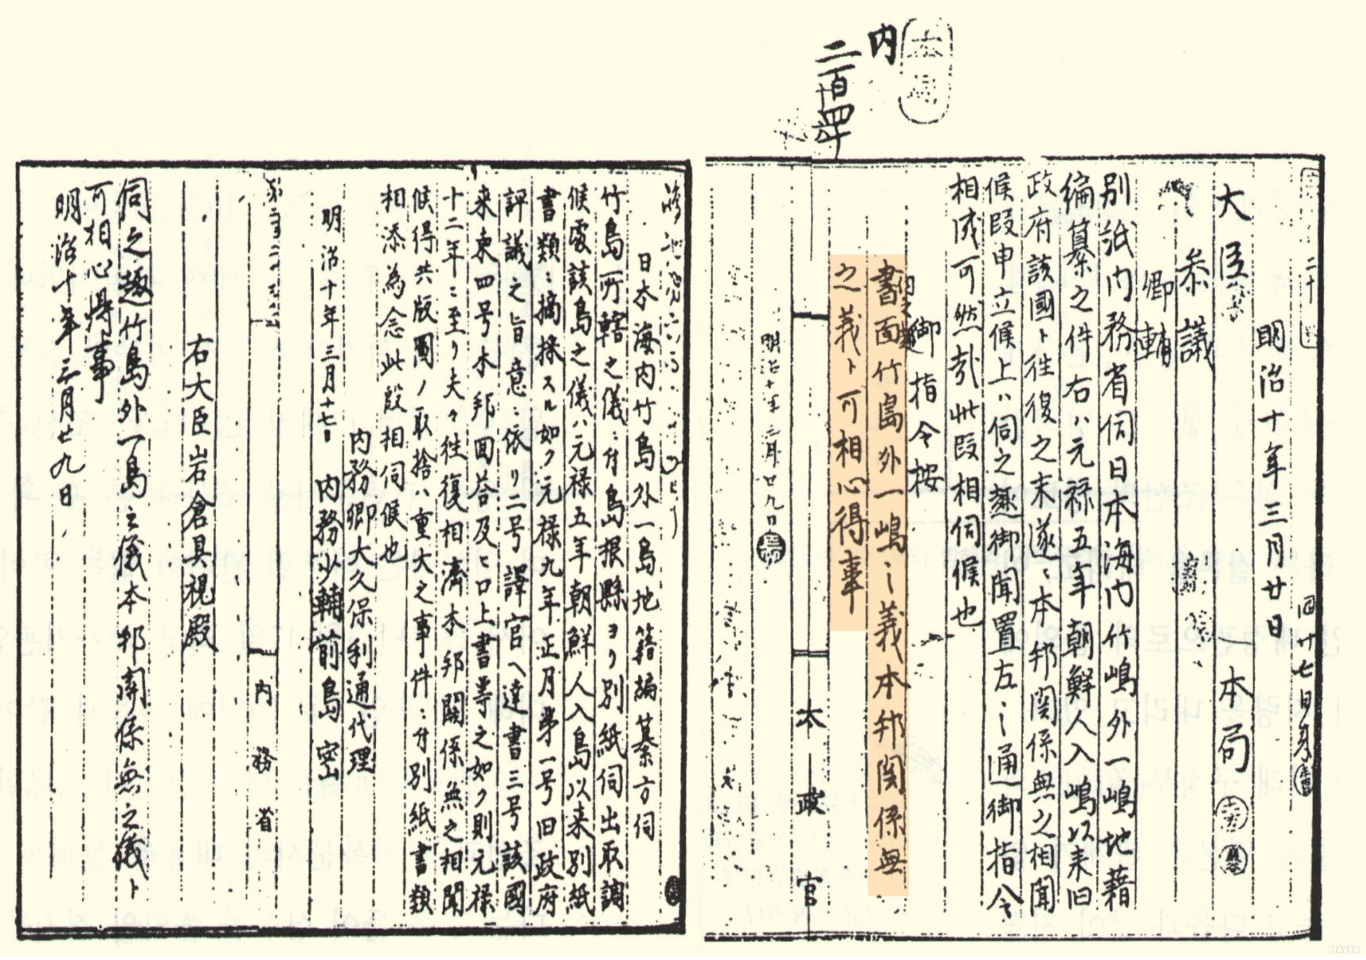 内
二百四十
明治十年三月廿日
大臣
本局
参議
卿輔
別紙内務省伺日本海内竹嶋外一嶋地籍
編纂之件右元禄五年朝鮮人入嶋以来旧
政府該國ト往復之末遂ニ本邦関係無之相聞
候段申立候上ハ伺之趣御聞置左之通御指令
相成可然哉此段相伺候也
御指令按
書面竹島外一嶋之義本邦関係無
之義ト可相心得事
明治十年三月廿九日
太政官
日本海内竹島外一島地籍編纂方伺
竹島所轄之儀ニ付島根縣ヨリ別紙伺出取調
候處該島之儀ハ元禄五年朝鮮人入島以来別紙
書類ニ摘採スル如ク元禄九年正月第一号旧政府
評議之旨意ニ依リ二号譯官ヘ達書三号該國
来柬四号本邦回答及ヒ口上書等之如ク則元禄
十二年ニ至リ夫々往復相濟本邦関係無之相聞
候得共版圖ノ取捨ハ重大之事件ニ付別紙書類
相添為念此段相伺候也
明治十年三月十七日
内務少輔前島密
内務卿大久保利通代理
内務省
右大臣岩倉具視殿
伺之趣竹島外一島之儀本邦関係無之儀ト
可相心得事
明治十年三月廿九日
NAVER